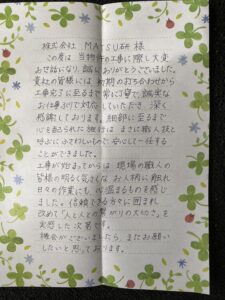 株式会社 MATSU研 様
この度は、当物件の工事に際し大変
お世話になり、誠にありがとうございました。
貴社の皆様には、初期の打ち合わせから
工事完了に至るまで常に丁寧で、誠実な
お仕事ぶりで支えていただき、深く
感謝しております。細部に至るまで
心を配られた施行は、まさに職人技と
呼ぶにふさわしいもので、安心して一任する
ことができました。
工事が始まってからは、現場の職人の
皆様の明るく気さくなお人柄に触れ
日々の作業にも心温まるものを感じ
ました。信頼できる方々に囲まれ
改めて"人と人との繋がりの大切さ"を
実感した次第です。
機会がございましたら、またお願い
したいと思っております。